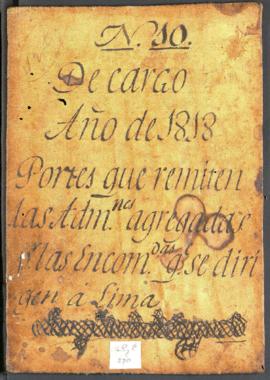 N. 10.
De cargo
Año de 1818
Portes que remiten
las Adm.nes agregadas
y las Encom.das q.e se diri
gen á Lima